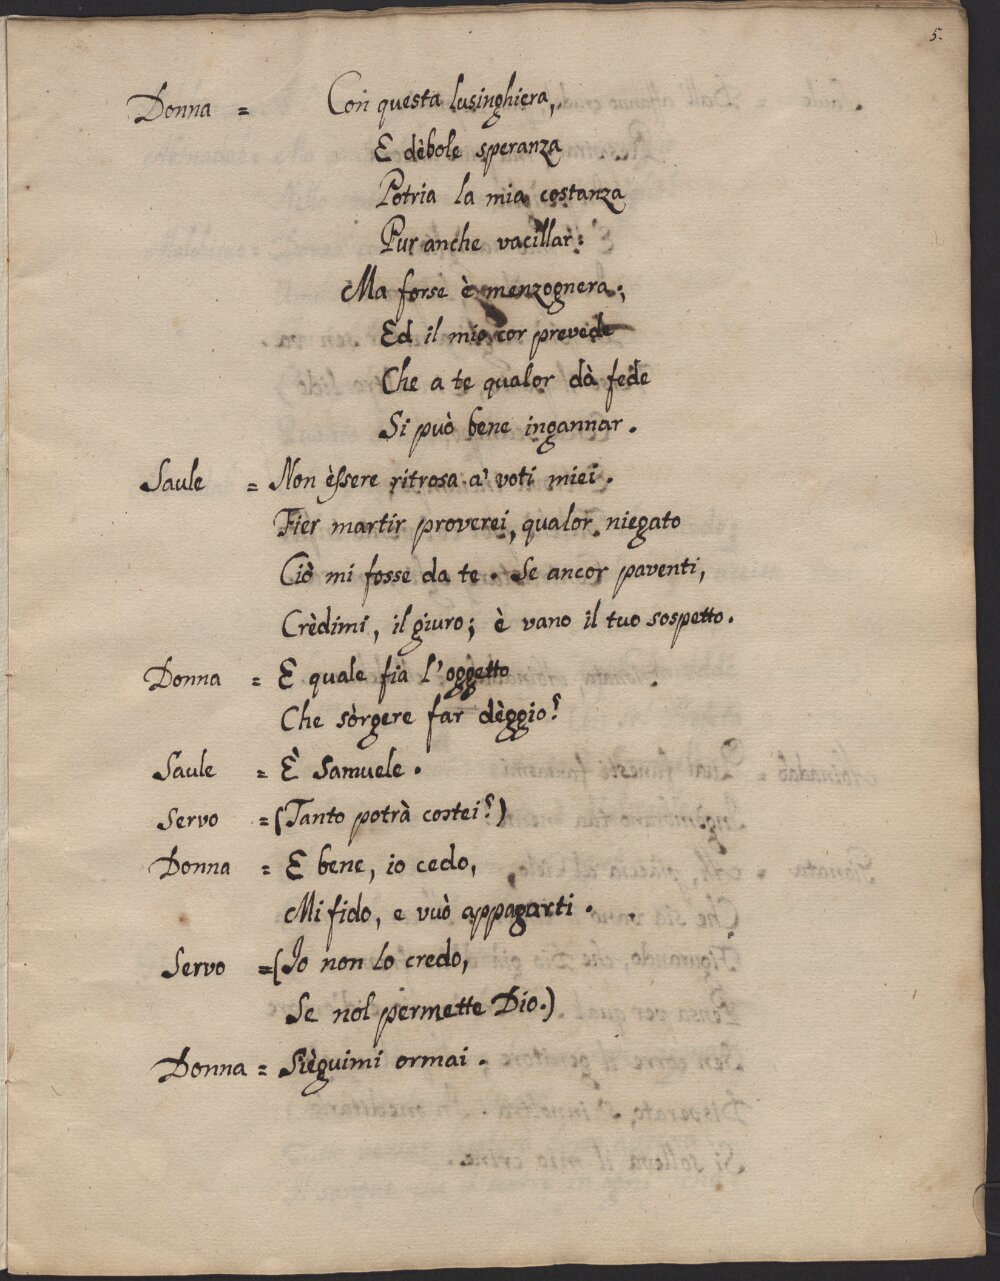 5.
Donna = Con questa lusinghiera,
E dèbole speranza
Potria la mia costanza
Pur anche vacillar:
Ma forse è menzognera;
Ed il mio cor prevede
Che a te qualor dà fede
Si può bene ingannar.
Saule = Non èssere ritrosa a' voti miei.
Fier martir proverei, qualor niegato
Ciò mi fosse da te. Se ancor paventi,
Crèdimi, il giuro; è vano il tuo sospetto.
Donna = E quale fia l'oggetto
Che sòrgere far dèggio?
Saule = È Samuele.
Servo = (Tanto potrà costei?)
Donna = E bene, io cedo,
Mi fido, e vuò appagarti.
Servo = (Io non lo credo,
Se nol permette Dio.)
Donna = Sièguimi ormai.